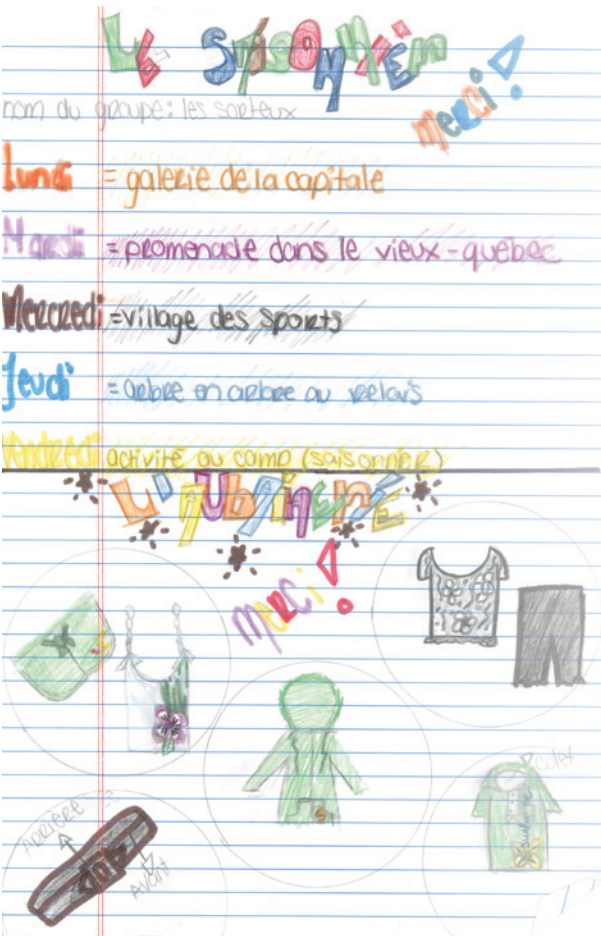 merci!
nom du groupe: les sorteux
Lundi = galerie de la capitale
Mardi = promenade dans le vieux-québec
Mercredi = village des sports
Jeudi = arbre en arbre au relais
Vendredi activité au camp (saisonnier)
merci!
ARRIÈRE
Avant